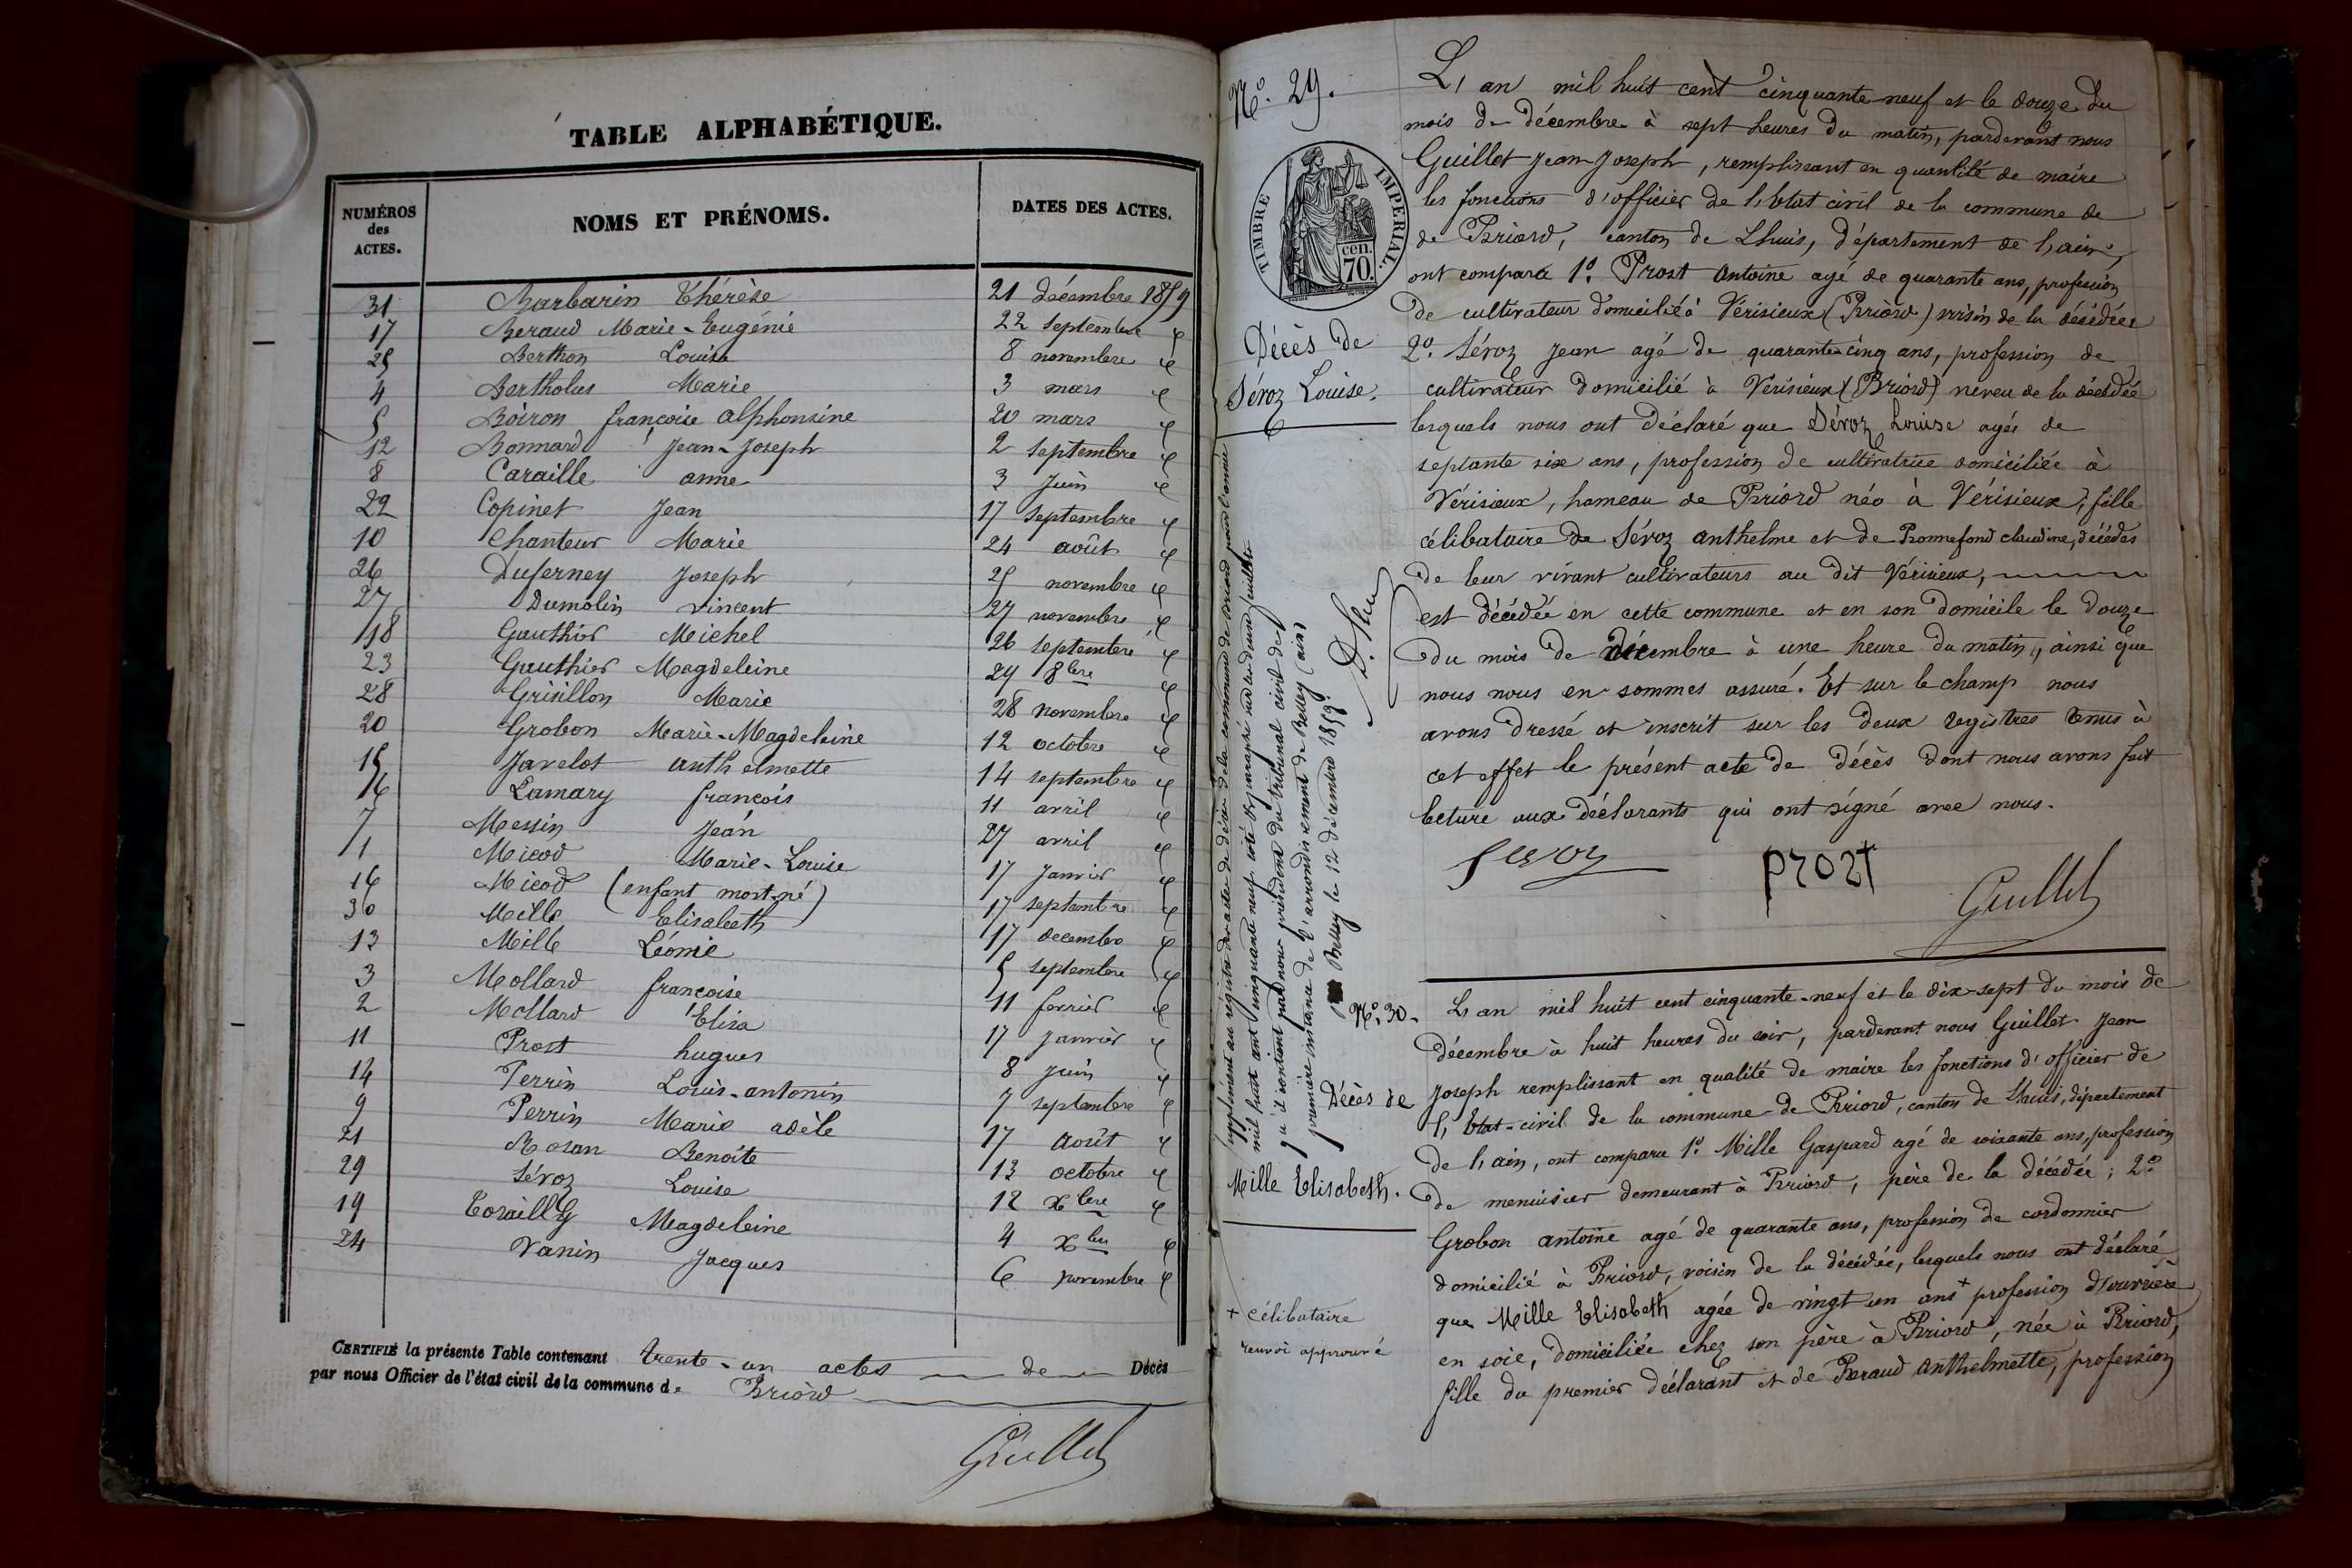 TABLE ALPHABÉTIQUE.
NUMÉROS des ACTES. NOMS ET PRÉNOMS. DATES DES ACTES.
31 Barbarin Thérèse 21 décembre 1859
17 Beraud Marie-Eugénie 22 septembre
25 Berthon Louise 8 novembre
4 Bertholus Marie 3 mars
5 Boiron françoise alphonsine 20 mars
12 Bonnard Jean-Joseph 2 septembre
8 Caraille anne 3 Juin
22 Copinet Jean 17 septembre
10 Chanteur Marie 24 août
26 Duferney Joseph 25 novembre
27 Dumolin vincent 27 novembre
18 Gauthier Michel 26 septembre
23 Gauthier Magdeleine 29 8bre
28 Grisillon Marie 28 novembre
20 Grobon Marie-Magdeleine 12 octobre
15 Javelot anthelmette 14 septembre
6 Lamary françois 11 avril
7 Messin Jean 27 avril
1 Micod Marie-Louise 17 Janvier
16 Micod (enfant mort-né) 17 septembre
30 Mille Elisabeth 17 decembre
13 Mille Léonie 5 septembre
3 Mollard françoise 11 fevrier
2 Mollard Eliza 17 janvier
11 Prost hugues 8 juin
14 Perrin Louis-antonin 7 septembre
9 Perrin Marie adèle 17 août
21 Rosan Benoîte 13 octobre
29 Sévoz Louise 12 xbre
19 Magdeleine 4 xbre
24 Vanin Jacques 6 novembre
CERTIFIÉ la présente Table contenant trente-un actes de Décès
par nous Officier de l'état civil de la commune de Briord
Guillet
No. 29.
TIMBRE IMPERIAL.
cen. 70.
Décès de
Sévoz Louise.
L'an mil huit cent cinquante-neuf et le douze du
mois de décembre à sept heures du matin, pardevant nous
Guillet Jean Joseph, remplissant en quantité de maire
les fonctions d'officier de l'état civil de la commune de
de Briord, canton de Lhuis, département de l'ain,
ont comparu 1o. Prost Antoine agé de quarante ans, profession
de cultivateur domicilié à Vérisieux (Briord) voisin de la décédée
2o. Sévoz Jean agé de quarante-cinq ans, profession de
cultivateur domicilié à Vérisieux (Briord) neveu de la décédée
lesquels nous ont déclaré que Sévoz Louise agée de
septante six ans, profession de cultivatrice domiciliée à
Vérisieux, hameau de Briord née à Vérisieux, fille
célibataire de Sévoz anthelme et de Bonnefond claudine, décédés
de leur vivant cultivateurs au dit Vérisieux,
est décédée en cette commune et en son domicile le douze
du mois de décembre à une heure du matin, ainsi que
nous nous en sommes assuré. Et sur le champ nous
avons dressé et inscrit sur les deux registres tenus à
cet effet le présent acte de décès dont nous avons fait
lecture aux déclarants qui ont signé avec nous.
Sevoz prost Guillet
supplément au registre des actes de décès de la commune de Briord pour l'année
mil huit cent cinquante neuf coté et paraphé d'une feuille
qu'il contient par nous président du tribunal civil de
première instance de l'arrondissement de Belley (ain)
Belley le 12 décembre 1859.
No. 30.
Décès de
Mille Elisabeth.
+ célibataire
renvoi approuvé
L'an mil huit cent cinquante-neuf et le dix-sept du mois de
décembre à huit heures du soir, pardevant nous Guillet Jean
Joseph remplissant en qualité de maire les fonctions d'officier de
l'état-civil de la commune de Briord, canton de Lhuis, département
de l'ain, ont comparu 1o. Mille Gaspard agé de soixante ans, profession
de menuisier demeurant à Briord, père de la décédée; 2o.
Grobon antoine agé de quarante ans, profession de cordonnier
domicilié à Briord, voisin de la décédée, lesquels nous ont déclaré
que Mille Elisabeth agée de vingt un ans + profession d'ouvrière
en soie, domiciliée chez son père à Briord, née à Briord,
fille du premier déclarant et de Beraud Anthelmette, profession